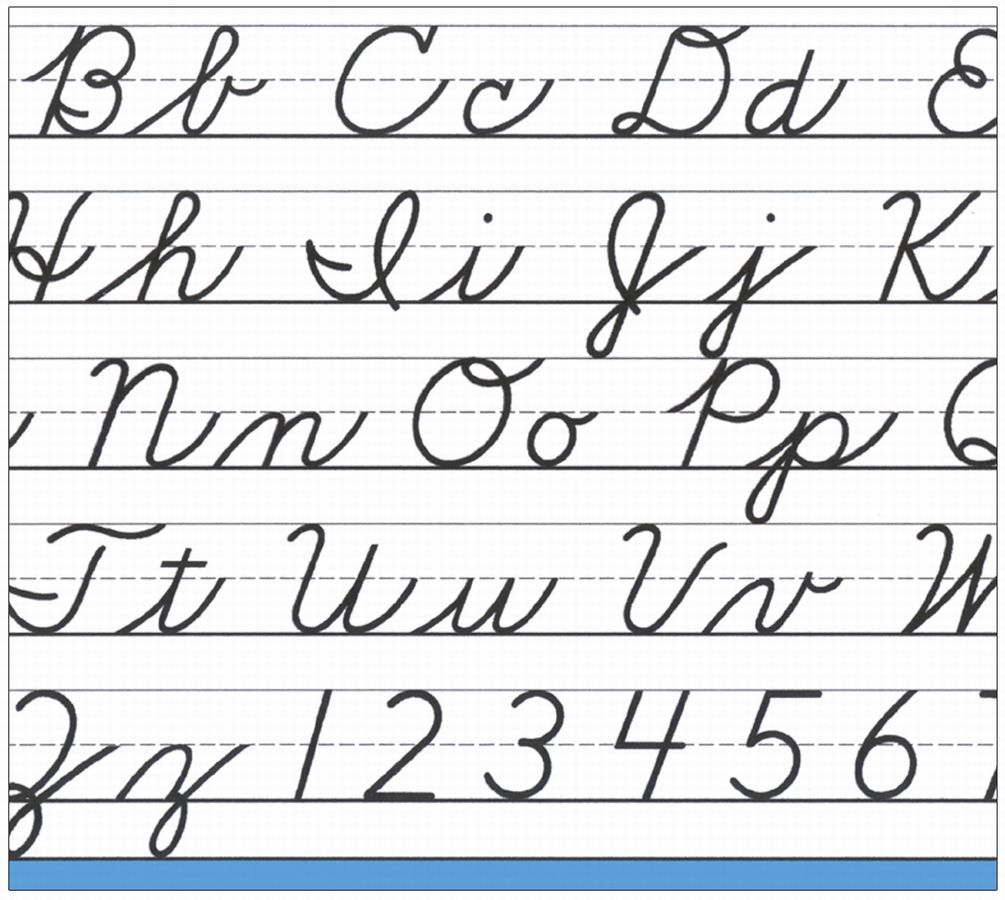 B b C c D d E
H h I i J j K
N n O o P p Q
T t U u V v W
Z z 1 2 3 4 5 6 7